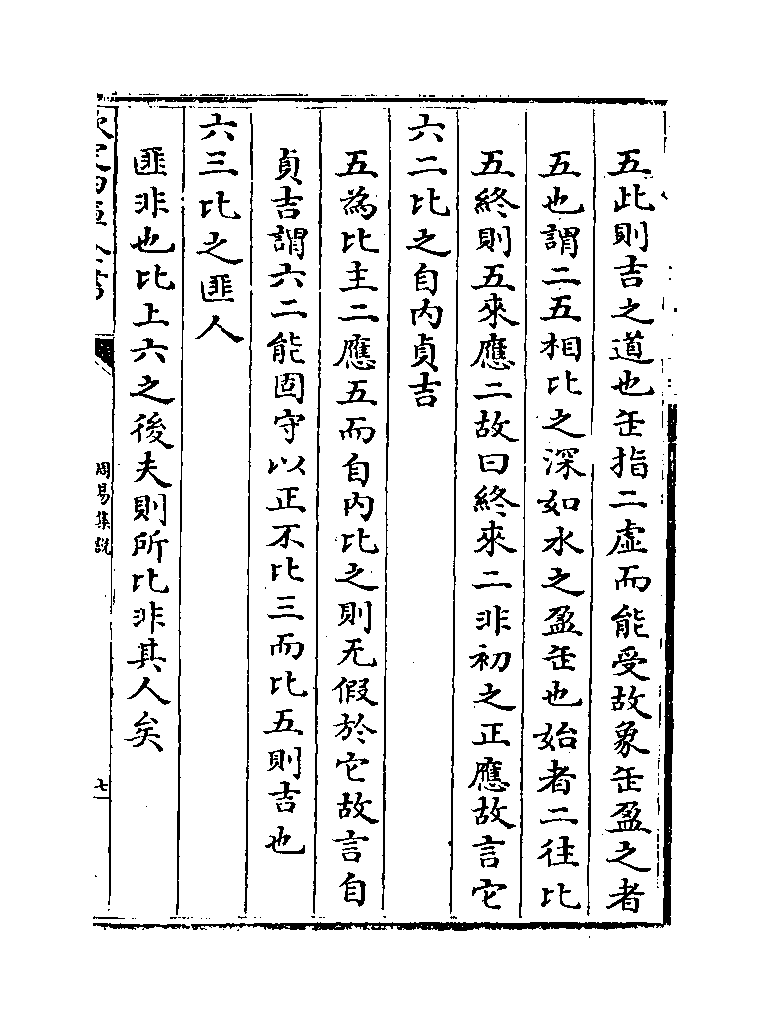 五此則吉之道也缶指二虛而能受故象缶盈之者
五也謂二五相比之深如水之盈缶也始者二往比
五終則五來應二故曰終來二非初之正應故言它
六二比之自内貞吉
五為比主二應五而自内比之則无假於它故言自
貞吉謂六二能固守以正不比三而比五則吉也
六三比之匪人
匪非也比上六之後夫則所比非其人矣
欽定四庫全書
周易集説
七